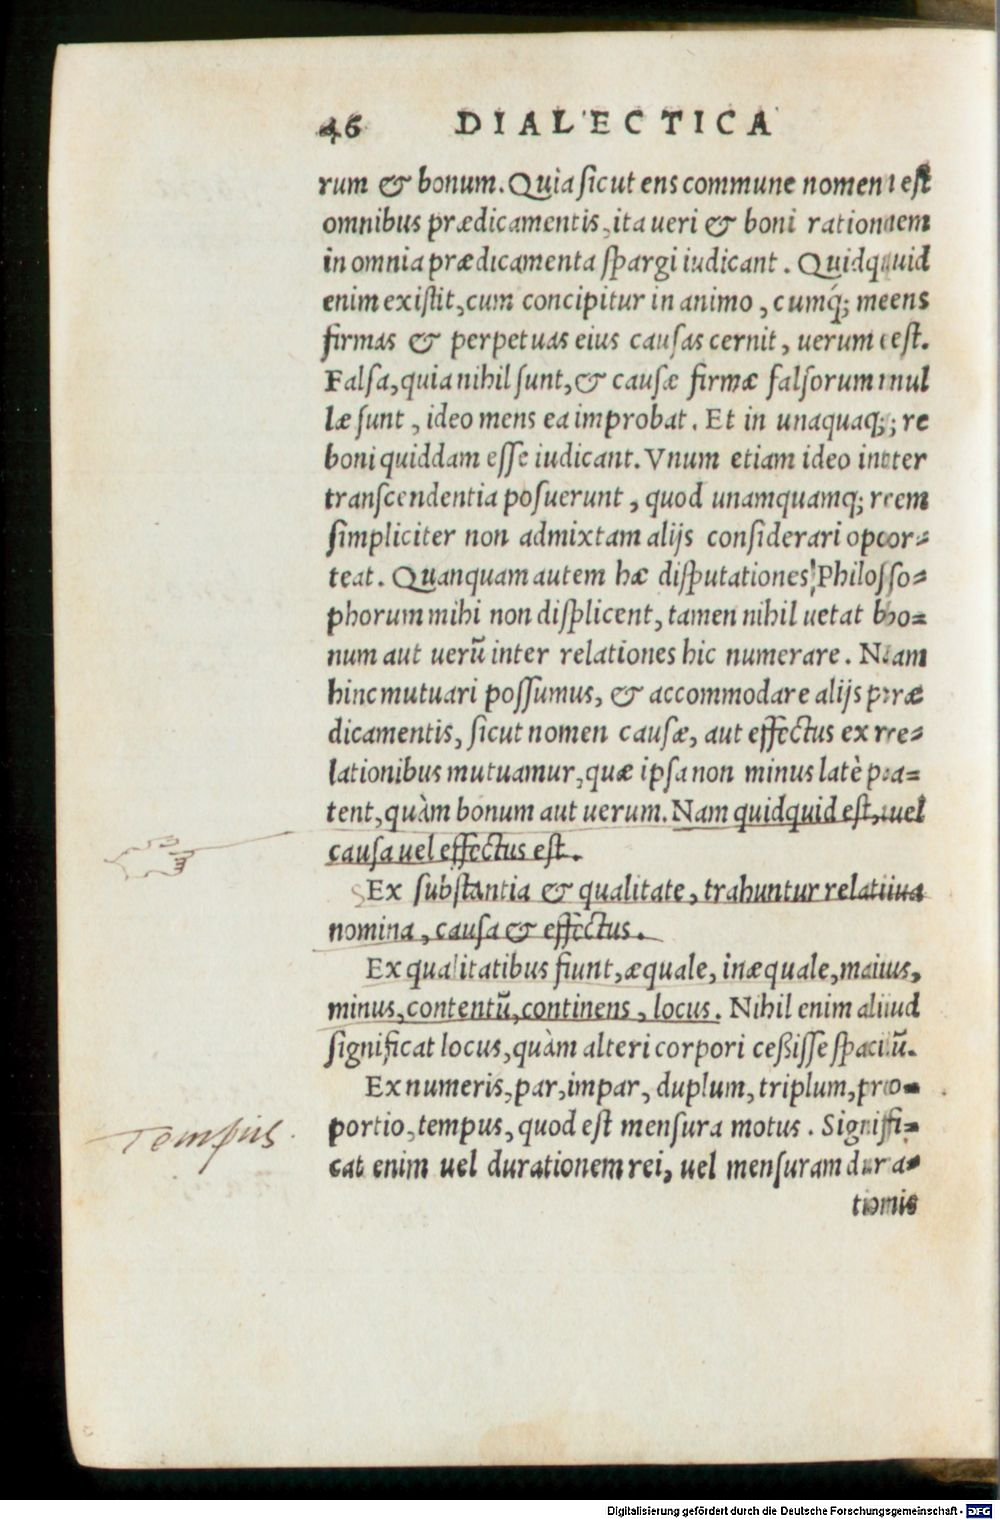 46 DIALECTICA
rum & bonum. Quia ſicut ens commune nomen eſt
omnibus prædicamentis, ita ueri & boni rationem
in omnia prædicamenta ſpargi iudicant. Quidquid
enim exiſtit, cum concipitur in animo, cumq́; mens
firmas & perpetuas eius cauſas cernit, uerum eſt.
Falſa, quia nihil ſunt, & cauſæ firmæ falſorum nul
læ ſunt, ideo mens ea improbat. Et in unaquaq; re
boni quiddam eſſe iudicant. Vnum etiam ideo inter
tranſcendentia poſuerunt, quod unamquamq; rem
ſimpliciter non admixtam alijs conſiderari opor⸗
teat. Quanquam autem hæ diſputationes Philoſo⸗
phorum mihi non diſplicent, tamen nihil uetat bo⸗
num aut uerũ inter relationes hic numerare. Nam
hinc mutuari poſſumus, & accommodare alijs præ
dicamentis, ſicut nomen cauſæ, aut effectus ex re⸗
lationibus mutuamur, quæ ipſa non minus latè pa⸗
tent, quàm bonum aut uerum. Nam quidquid eſt, uel
cauſa uel effectus eſt.
Ex ſubſtantia & qualitate, trahuntur relatiua
nomina, cauſa & effectus.
Ex qualitatibus fiunt, æquale, inæquale, maius,
minus, contentũ, continens, locus. Nihil enim aliud
ſignificat locus, quàm alteri corpori ceßiſſe ſpaciũ.
Ex numeris, par, impar, duplum, triplum, pro⸗
Tempus.
portio, tempus, quod eſt menſura motus. Signifi⸗
cat enim uel durationem rei, uel menſuram dura⸗
tionis
Digitalisierung gefördert durch die Deutsche Forschungsgemeinschaft - DFG